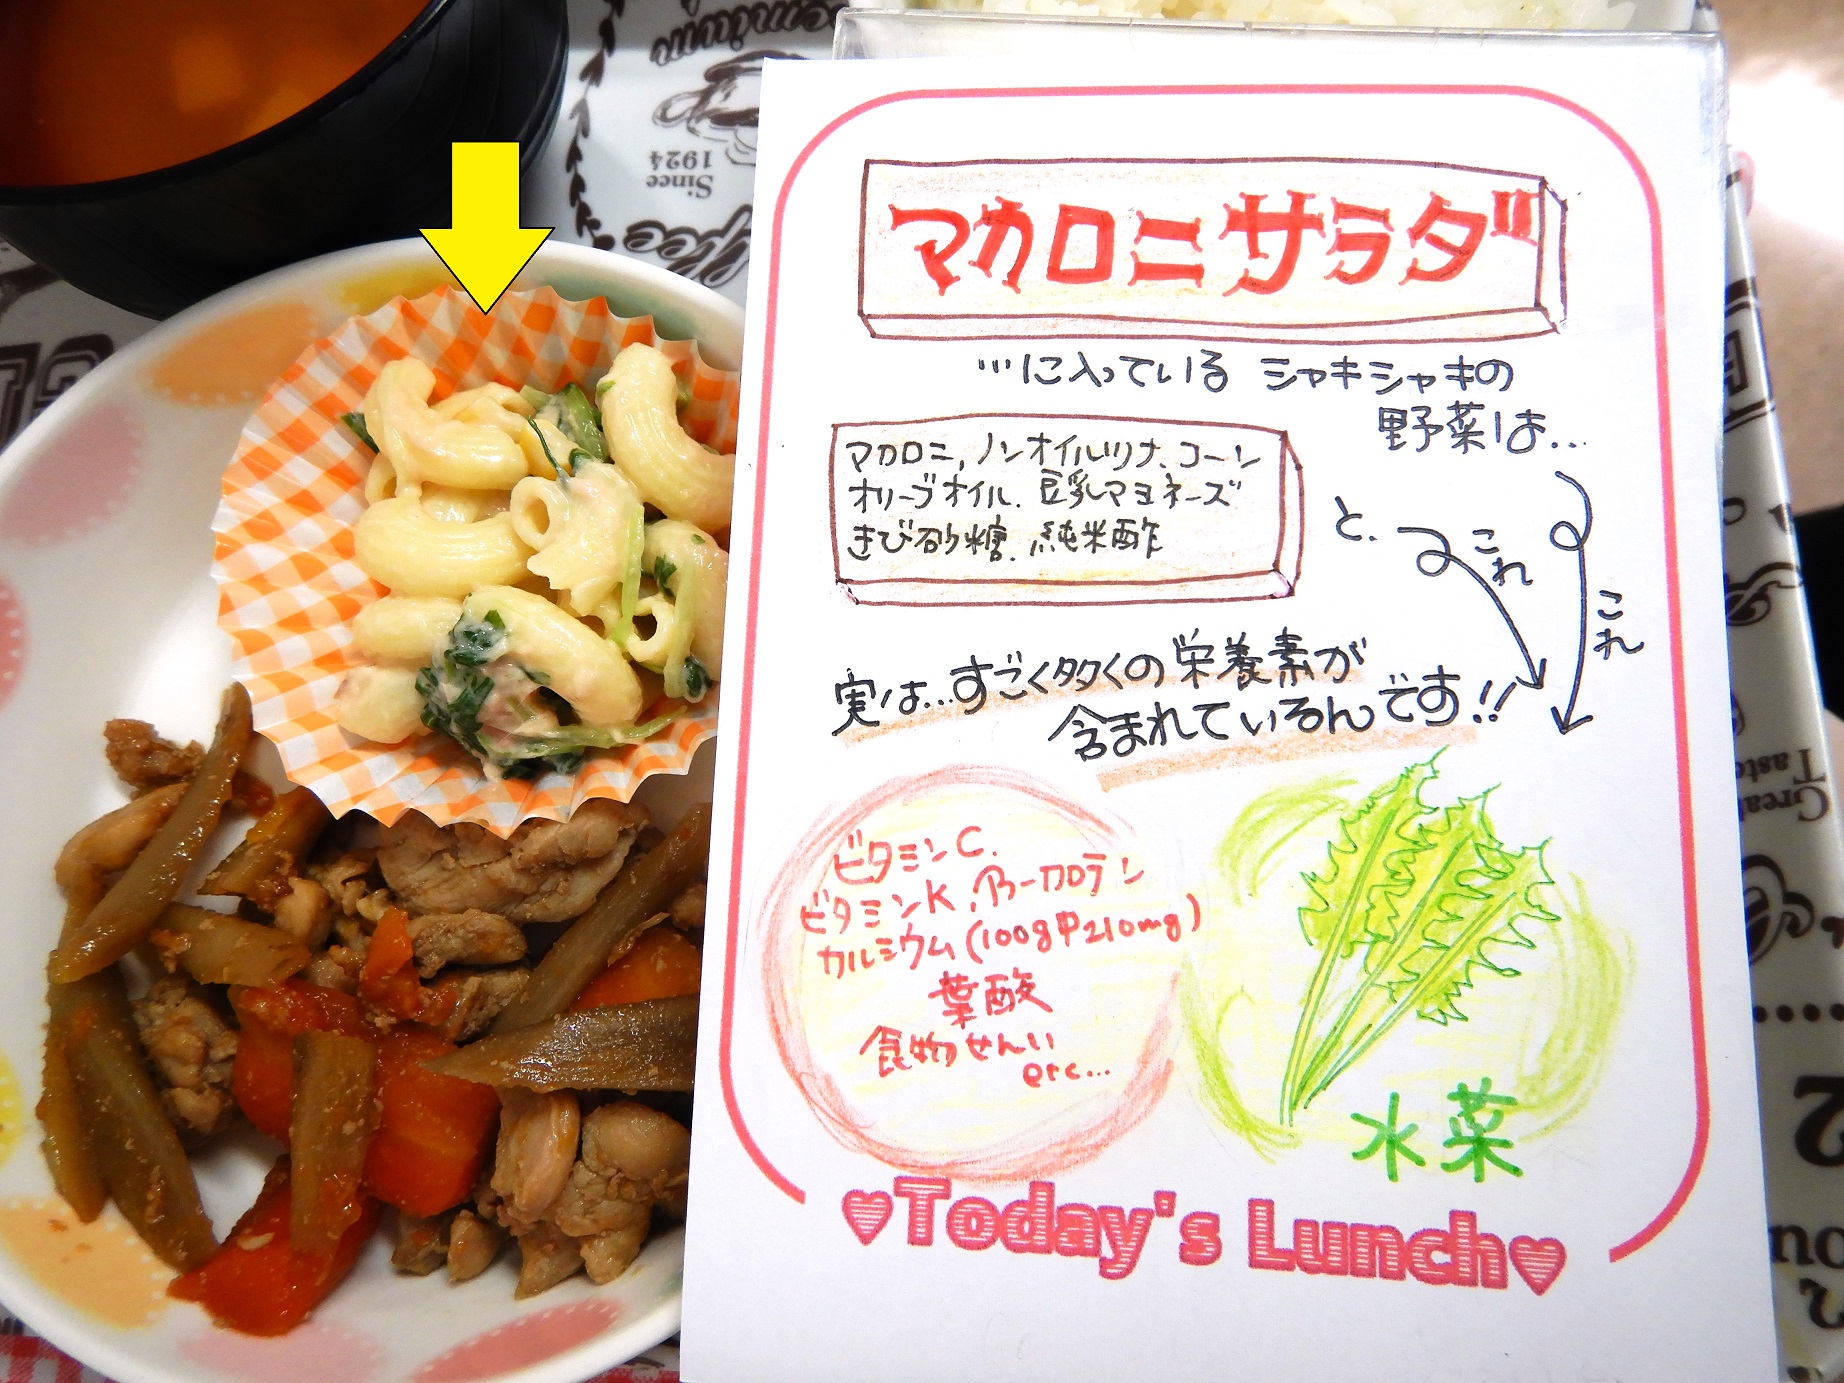 マカロニサラダ
…に入っている シャキシャキの
野菜は…
マカロニ, ノンオイルツナ、コーン
オリーブオイル、豆乳マヨネーズ
きび砂糖、純米酢
と、
これ
これ
実は…すごく多くの栄養素が
含まれているんです!!
ビタミンC、
ビタミンK、β-カロテン
カルシウム(100g中210mg)
葉酸
食物せんい
etc...
水菜
♥Today's Lunch♥
Since
1924